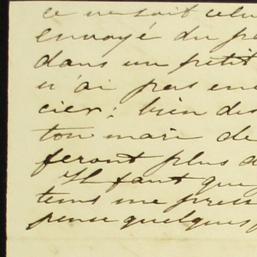 ce
envoyé du
dans un petit
n'ai pas en
cier; bien des
ton mari de
feront plus d
Il faut que
tems me pres
pense quelques